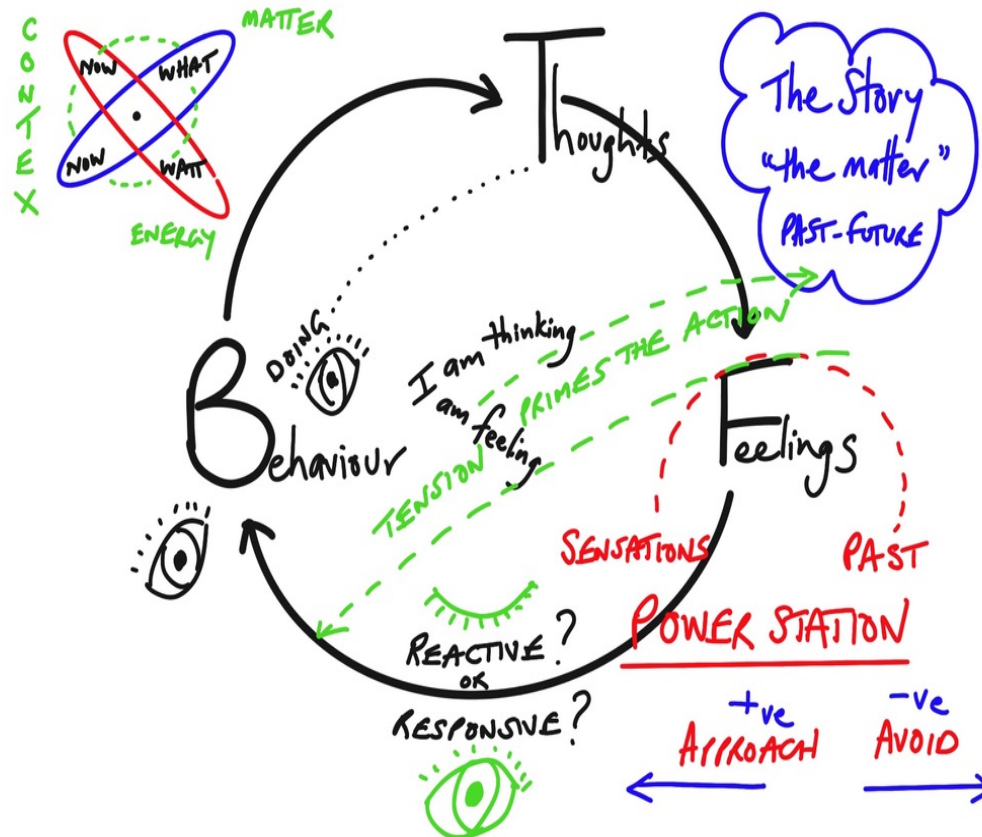 CONTEX
MATTER
NOW
WHAT
NOW
WATT
ENERGY
Thoughts
The Story
"the matter"
PAST-FUTURE
DOING
I am thinking
I am feeling
TENSION PRIMES THE ACTION
Behaviour
Feelings
SENSATIONS
PAST
POWER STATION
REACTIVE?
OR
RESPONSIVE?
+ve
-ve
APPROACH
AVOID